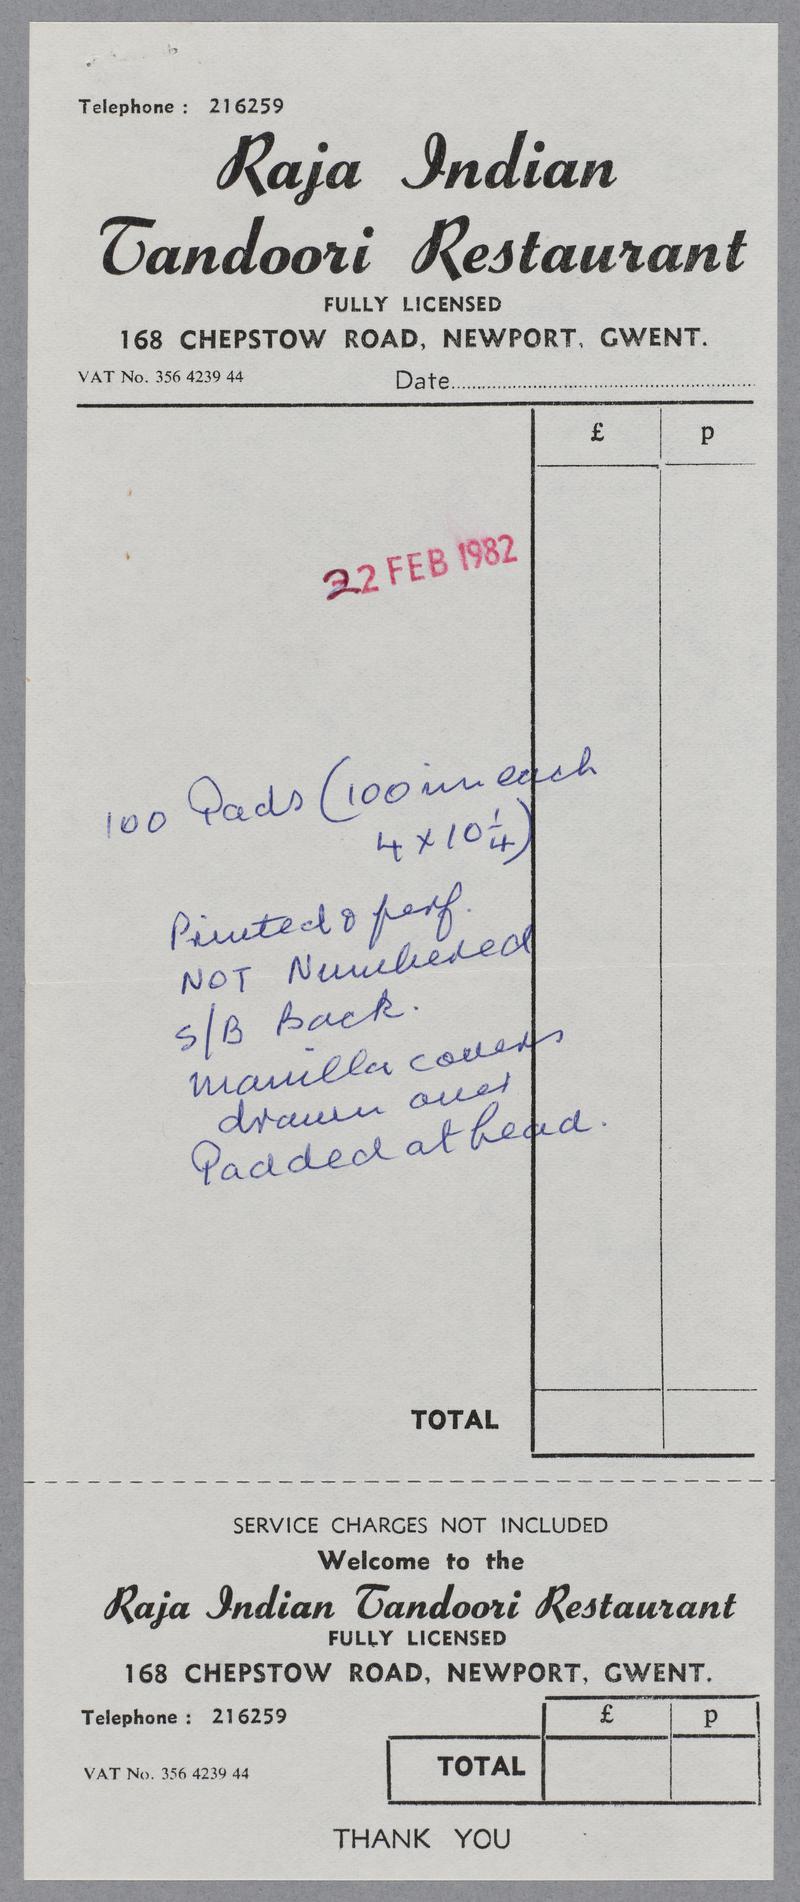 Telephone : 216259
Raja Indian
Tandoori Restaurant
FULLY LICENSED
168 CHEPSTOW ROAD, NEWPORT, GWENT.
VAT No. 356 4239 44 Date
£ p
22 FEB 1982
100 Pads (100 in each
4 x 10 1/4)
Printed & perf.
NOT Numbered
S/B Back.
Manilla covers
drawn over
Padded at head.
TOTAL
SERVICE CHARGES NOT INCLUDED
Welcome to the
Raja Indian Tandoori Restaurant
FULLY LICENSED
168 CHEPSTOW ROAD, NEWPORT, GWENT.
Telephone : 216259 £ p
VAT No. 356 4239 44 TOTAL
THANK YOU